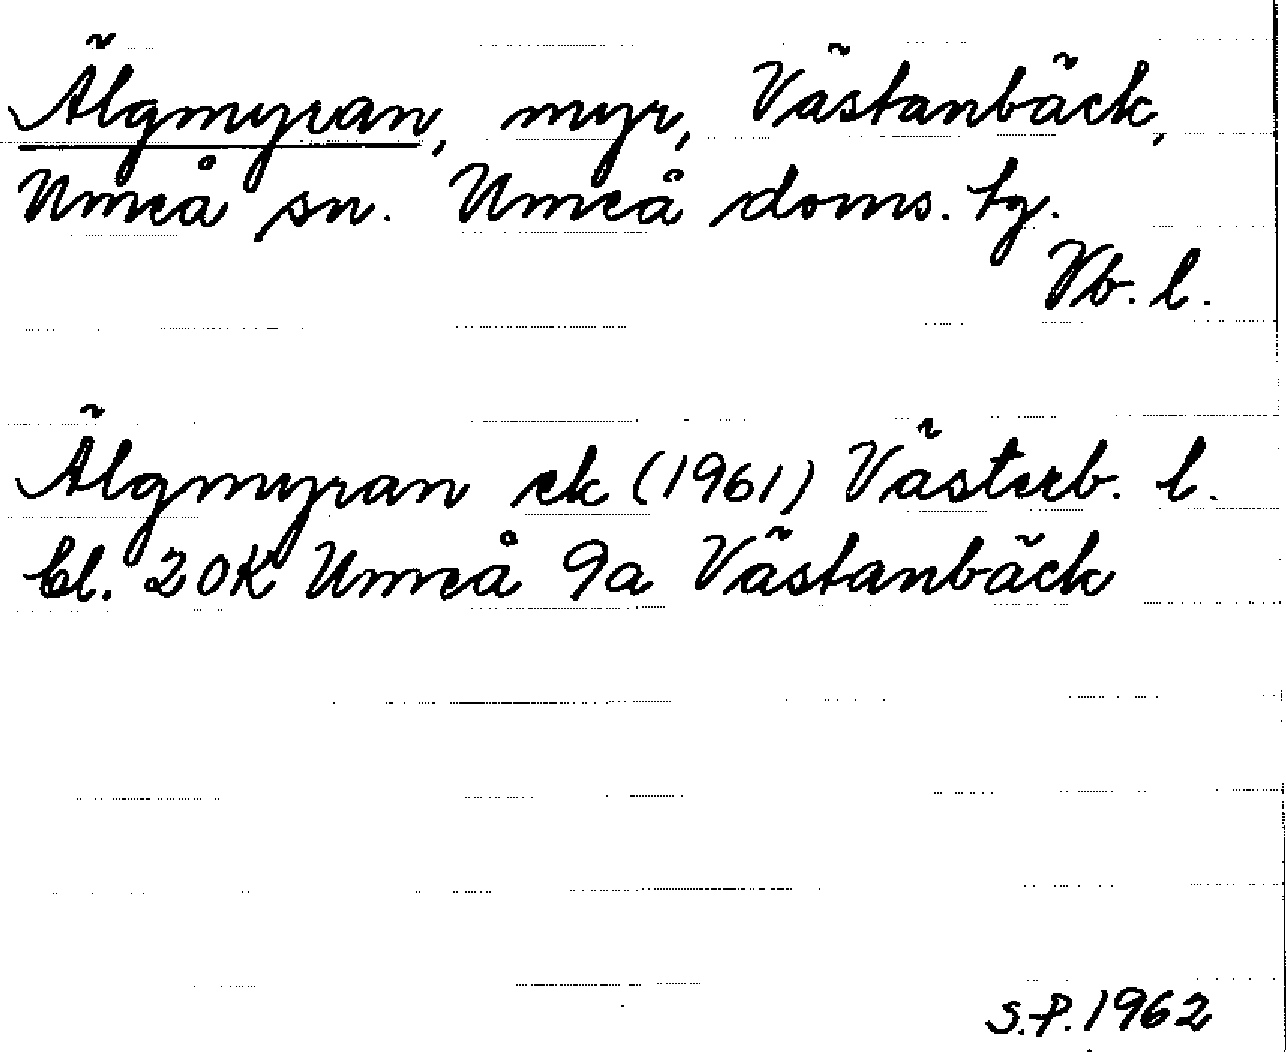 Älgmyran, myr, Västanbäck,
Umeå sn. Umeå doms. tg.
Vb. l.
Älgmyran ek (1961) Västerb. l.
bl. 20K Umeå 9a Västanbäck
S.P. 1962